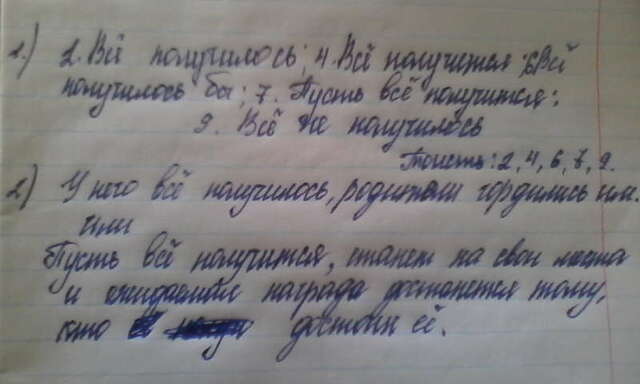 1.) 2. Всё получилось; 4. Всё получится; 6. Всё
получилось бы; 7. Пусть всё получится;
9. Всё не получилось
Тоисть: 2, 4, 6, 7, 9.
2.) У него всё получилось, родители гордились им.
или
Пусть всё получится, станет на свои места
и ожидаемая награда достанется тому,
кто достоин её.